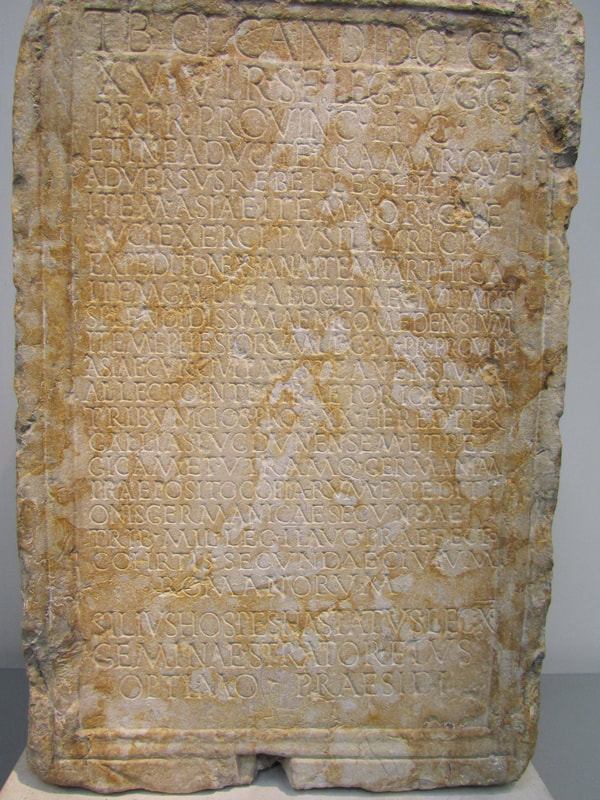 TIB·CL·CANDIDO·COS
XV·VIR·S·F·LEG·AVGG
PR·PR·PROVINC·H·C·
ET IN EA DVCI TERRA MARIQVE
ADVERSVS REBELLES H H P R
ITEM ASIAE ITEM NORICAE
DVCI EXERCITVS ILLYRICI
EXPEDITIONE ASIANA ITEM PARTHICA
ITEM GALLICA LOGISTAE CIVITATIS
SPLENDIDISSIMAE NICOMEDENSIVM
ITEM EPHESIORVM LEG·PR·PR·PROVIN
ASIAE CVR CIVITATIS TEANENSIVM
ALLECTO INTER PRAETORIOS ITEM
TRIBVNICIOS PROC XX HERED PER
GALLIAS LVGDVNENSEM ET BEL
GICAM ET VTRAMQ GERMANIAM
PRAEPOSITO COPIARVM EXPEDITI
ONIS GERMANICAE SECVNDAE
TRIB·MIL·LEG·II·AVG·PRAEFECTO
COHORTIS SECVNDAE CIVIVM
ROMANORVM
SILIVS HOSPES HASTATVS LEG X
GEMINAE STRATOR EIVS
OPTIMO PRAESIDI